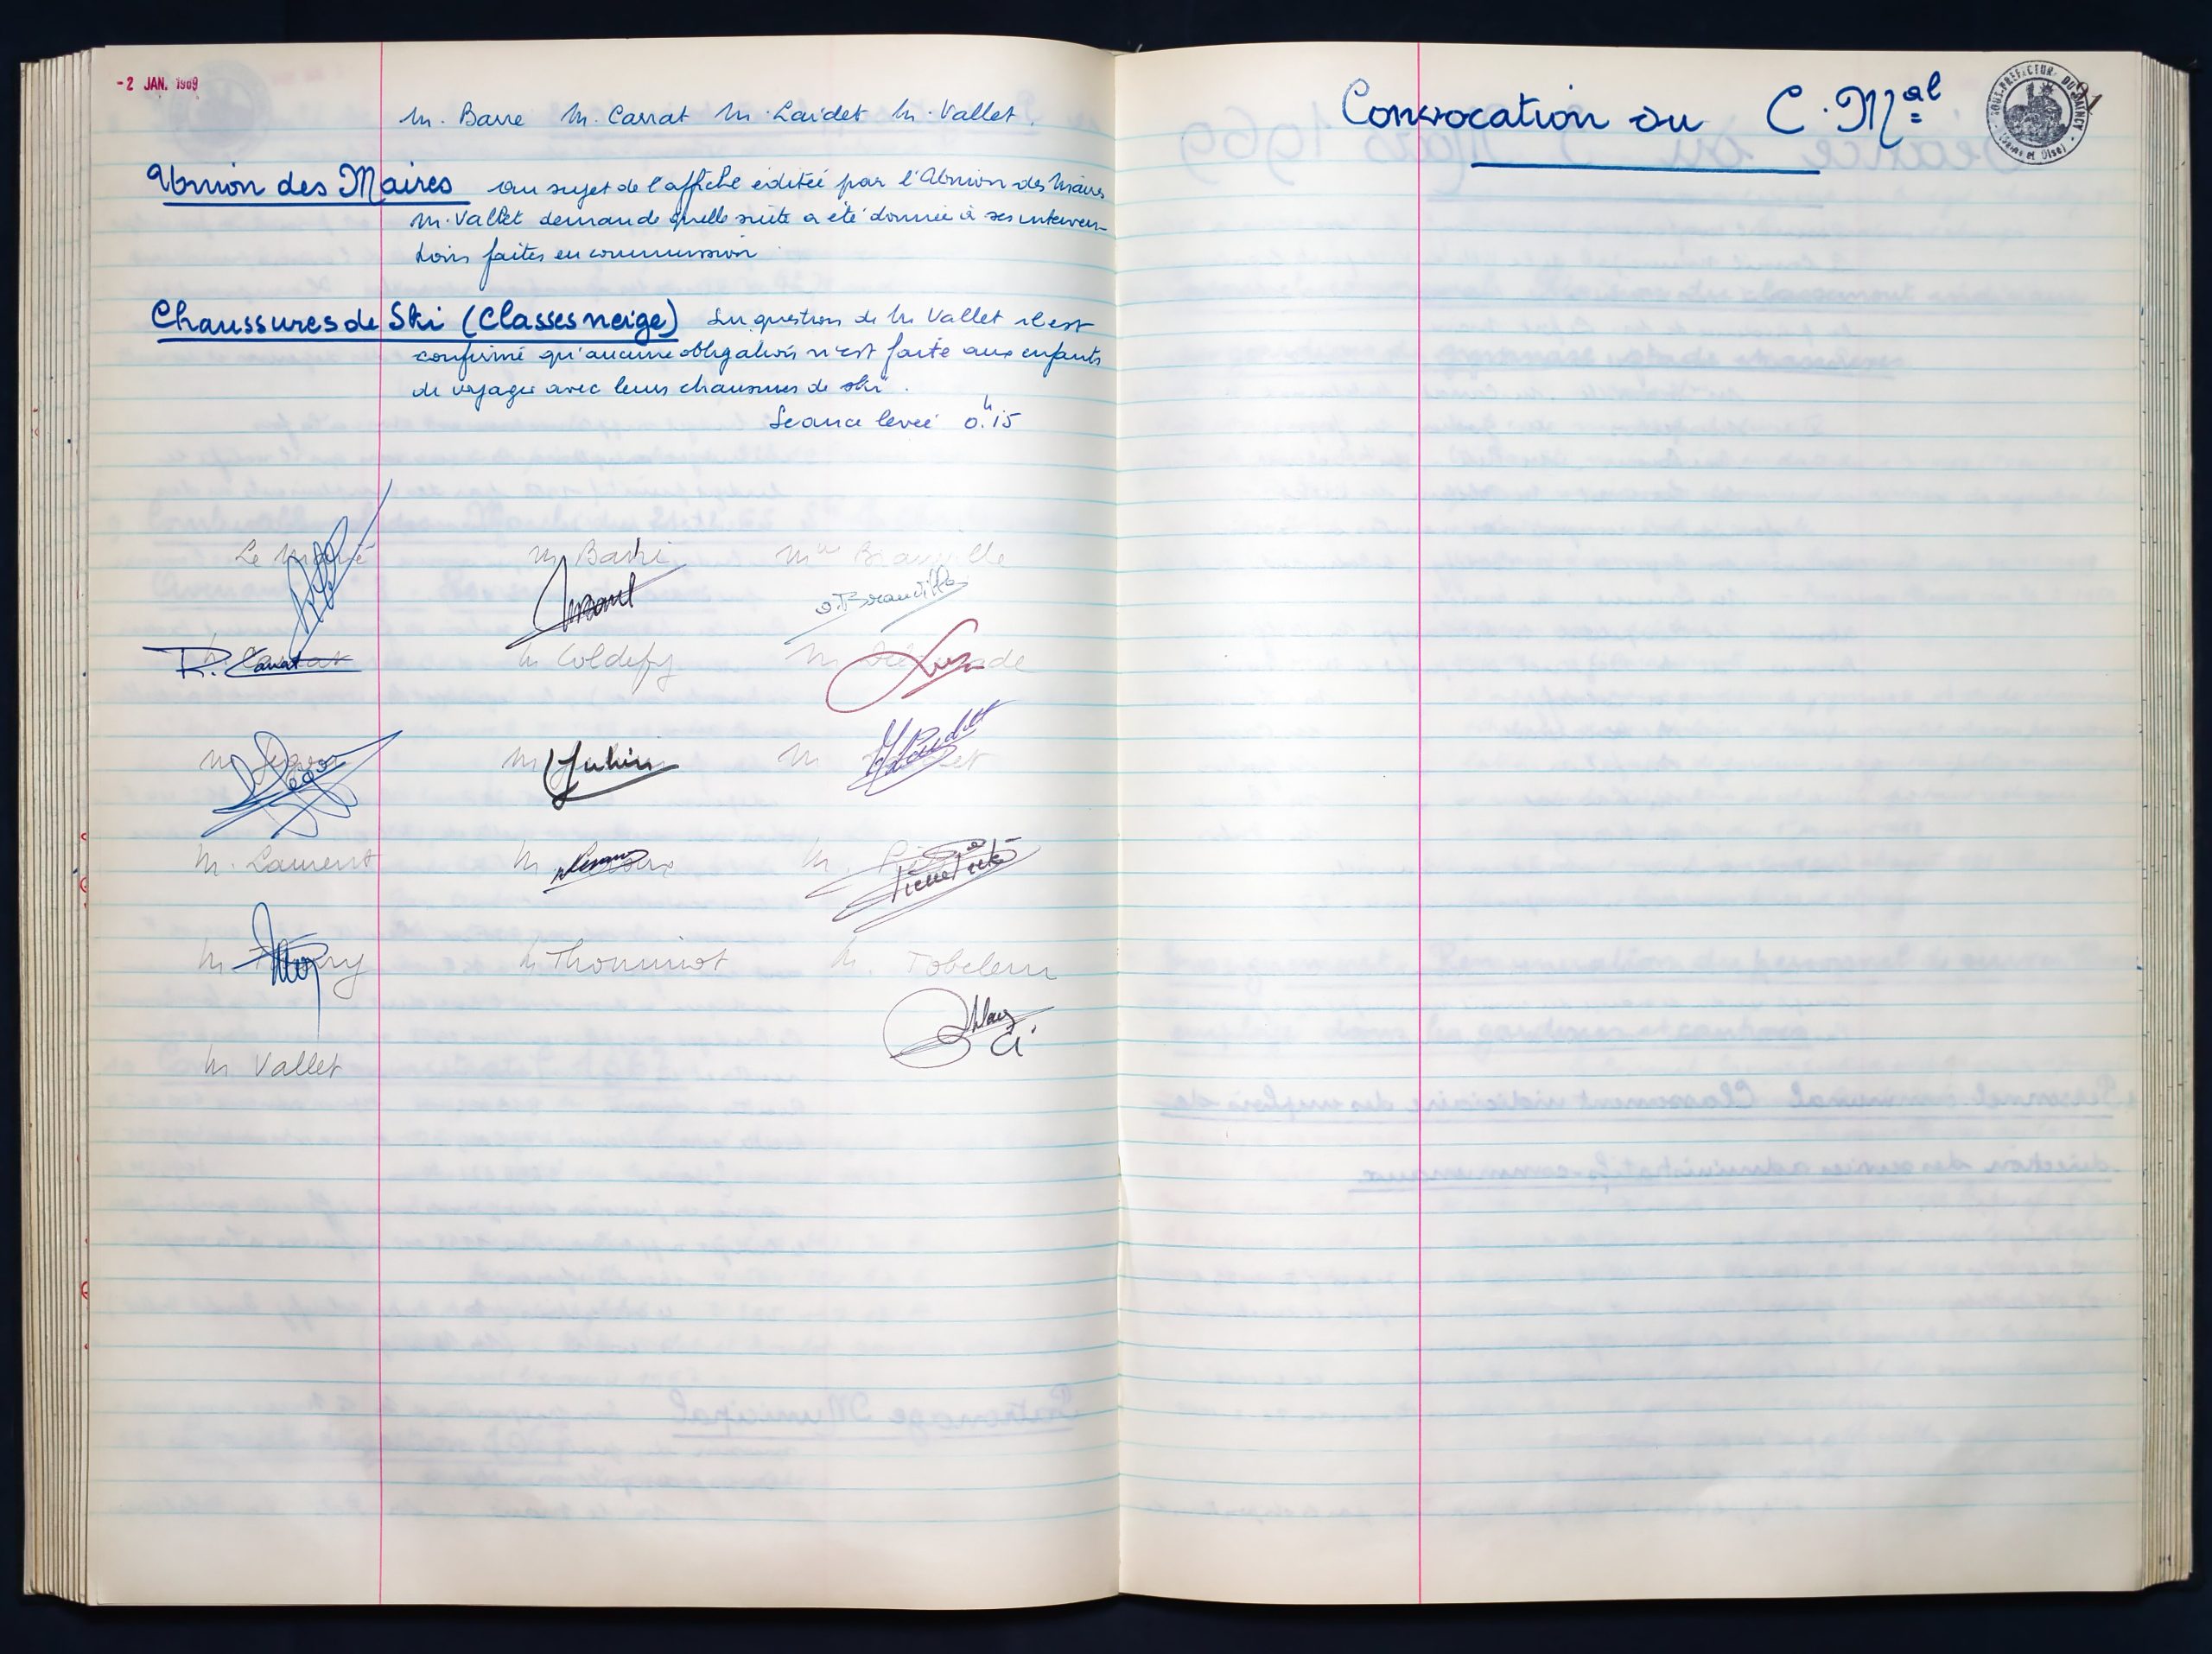 -2 JAN. 1969
M. Barre M. Carrat M. Laidet M. Vallet.
Union des Maires Au sujet de l'affiche éditée par l'Union des Maires
M. Vallet demande quelle suite a été donnée à ses interven-
tions faites en commission
Chaussures de Ski (Classes neige) Sur question de M Vallet il est
confirmé qu'aucune obligation n'est faite aux enfants
de voyager avec leurs chaussures de ski.
Séance levée 0h.15
Le Maire M M Brauville
Brauville
R. Carrat M Coldefy M
M Segor M Juhin M
M. Laurent M M.
M M Thominot M. Tobelem
M Vallet
Convocation du C. Mal
SOUS-PREFECTURE DU RAINCY
(Seine et Oise)